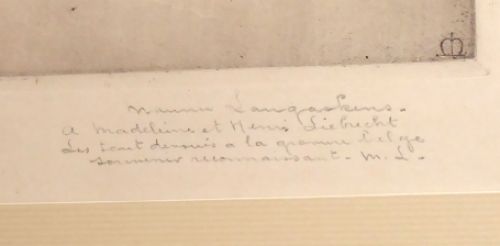 Maurice Langaskens.
A Madeleine et Henri Liebrecht
Les tout dévoués a la gravure belge
souvenir reconnaissant. M. L.